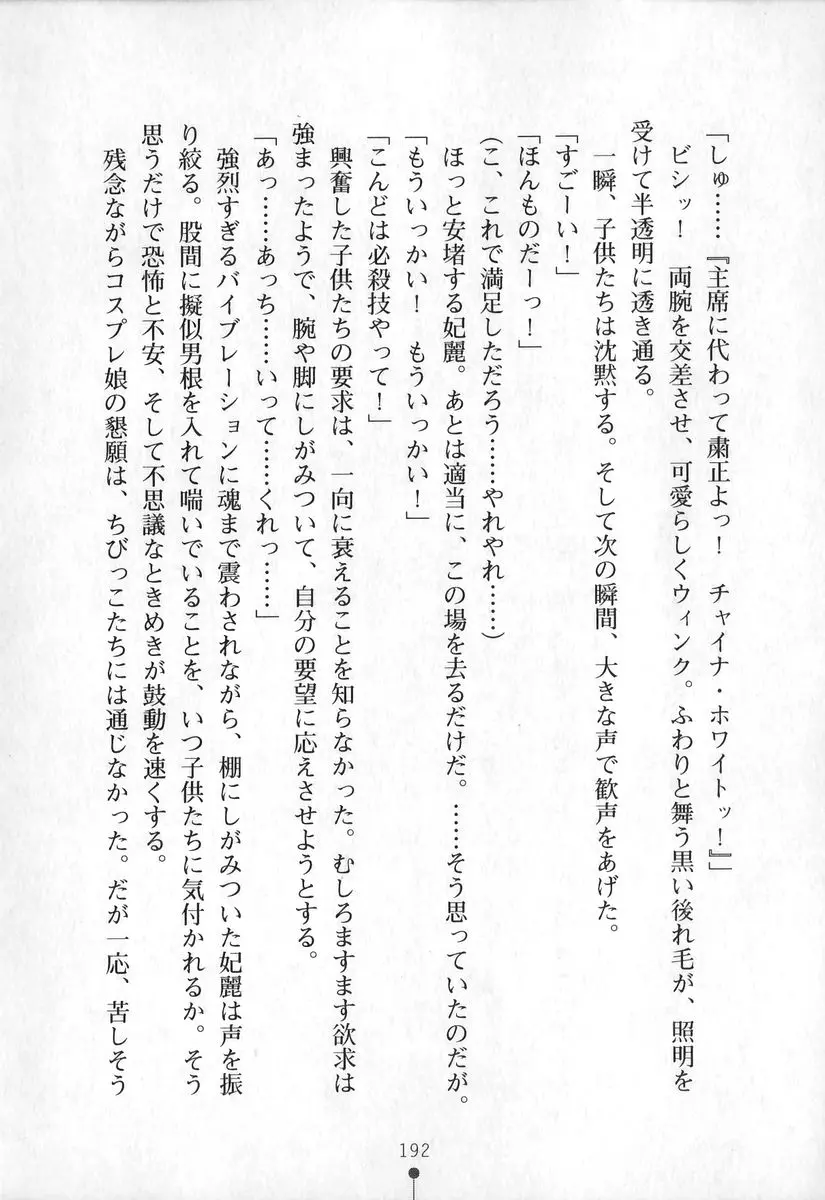 「しゅ……『主席に代わって粛正よっ！　チャイナ・ホワイトッ！』」
ビシッ！　両腕を交差させ、可愛らしくウィンク。ふわりと舞う黒い後れ毛が、照明を
受けて半透明に透き通る。
一瞬、子供たちは沈黙する。そして次の瞬間、大きな声で歓声をあげた。
「すごーい！」
「ほんものだーっ！」
（こ、これで満足しただろう……やれやれ……）
ほっと安堵する妃麗。あとは適当に、この場を去るだけだ。……そう思っていたのだが。
「もういっかい！　もういっかい！」
「こんどは必殺技やって！」
興奮した子供たちの要求は、一向に衰えることを知らなかった。むしろますます欲求は
強まったようで、腕や脚にしがみついて、自分の要望に応えさせようとする。
「あっ……あっち……いって……くれっ……」
強烈すぎるバイブレーションに魂まで震わされながら、棚にしがみついた妃麗は声を振
り絞る。股間に擬似男根を入れて喘いでいることを、いつ子供たちに気付かれるか。そう
思うだけで恐怖と不安、そして不思議なときめきが鼓動を速くする。
残念ながらコスプレ娘の懇願は、ちびっこたちには通じなかった。だが一応、苦しそう
192